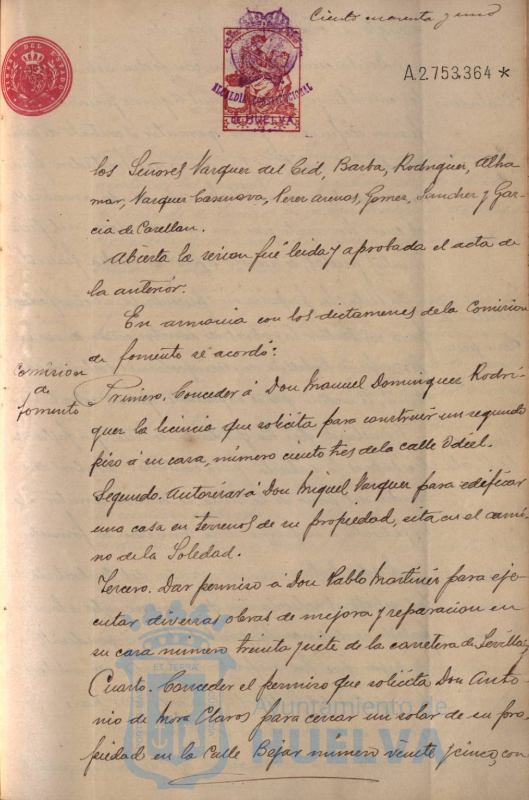 Ciento cuarenta y uno
A.2.753.364 *
TIMBRE DEL ESTADO
ALCALDIA CONSTITUCIONAL
de HUELVA
los Señores Vazquez del Cid, Barba, Rodriguez, Alha
mar, Vazquez Casanova, Perez Arenas, Gomez, Sanchez y Gar
cia de Castellan.
Abierta la sesion fué leida y aprobada el acta de
la anterior.
En armonia con los dictamenes de la Comision
de fomento se acordó:
Comision
de
fomento
Primero. Conceder á Don Manuel Dominguez Rodri
guez la licencia que solicita para construir un segundo
piso á su casa, número ciento tres de la calle Odiel.
Segundo. Autorizar á Don Miguel Vazquez para edificar
una casa en terrenos de su propiedad, sita en el cami
no de la Soledad.
Tercero. Dar permiso á Don Pablo Martinez para eje
cutar diversas obras de mejora y reparacion en
su casa número treinta y siete de la carretera de Sevilla; y
Cuarto. Conceder el permiso que solicita Don Anto
nio de Mora Claros para cercar un solar de su pro
piedad en la calle Bejar número veinte y cinco, con
Ayuntamiento de
HUELVA